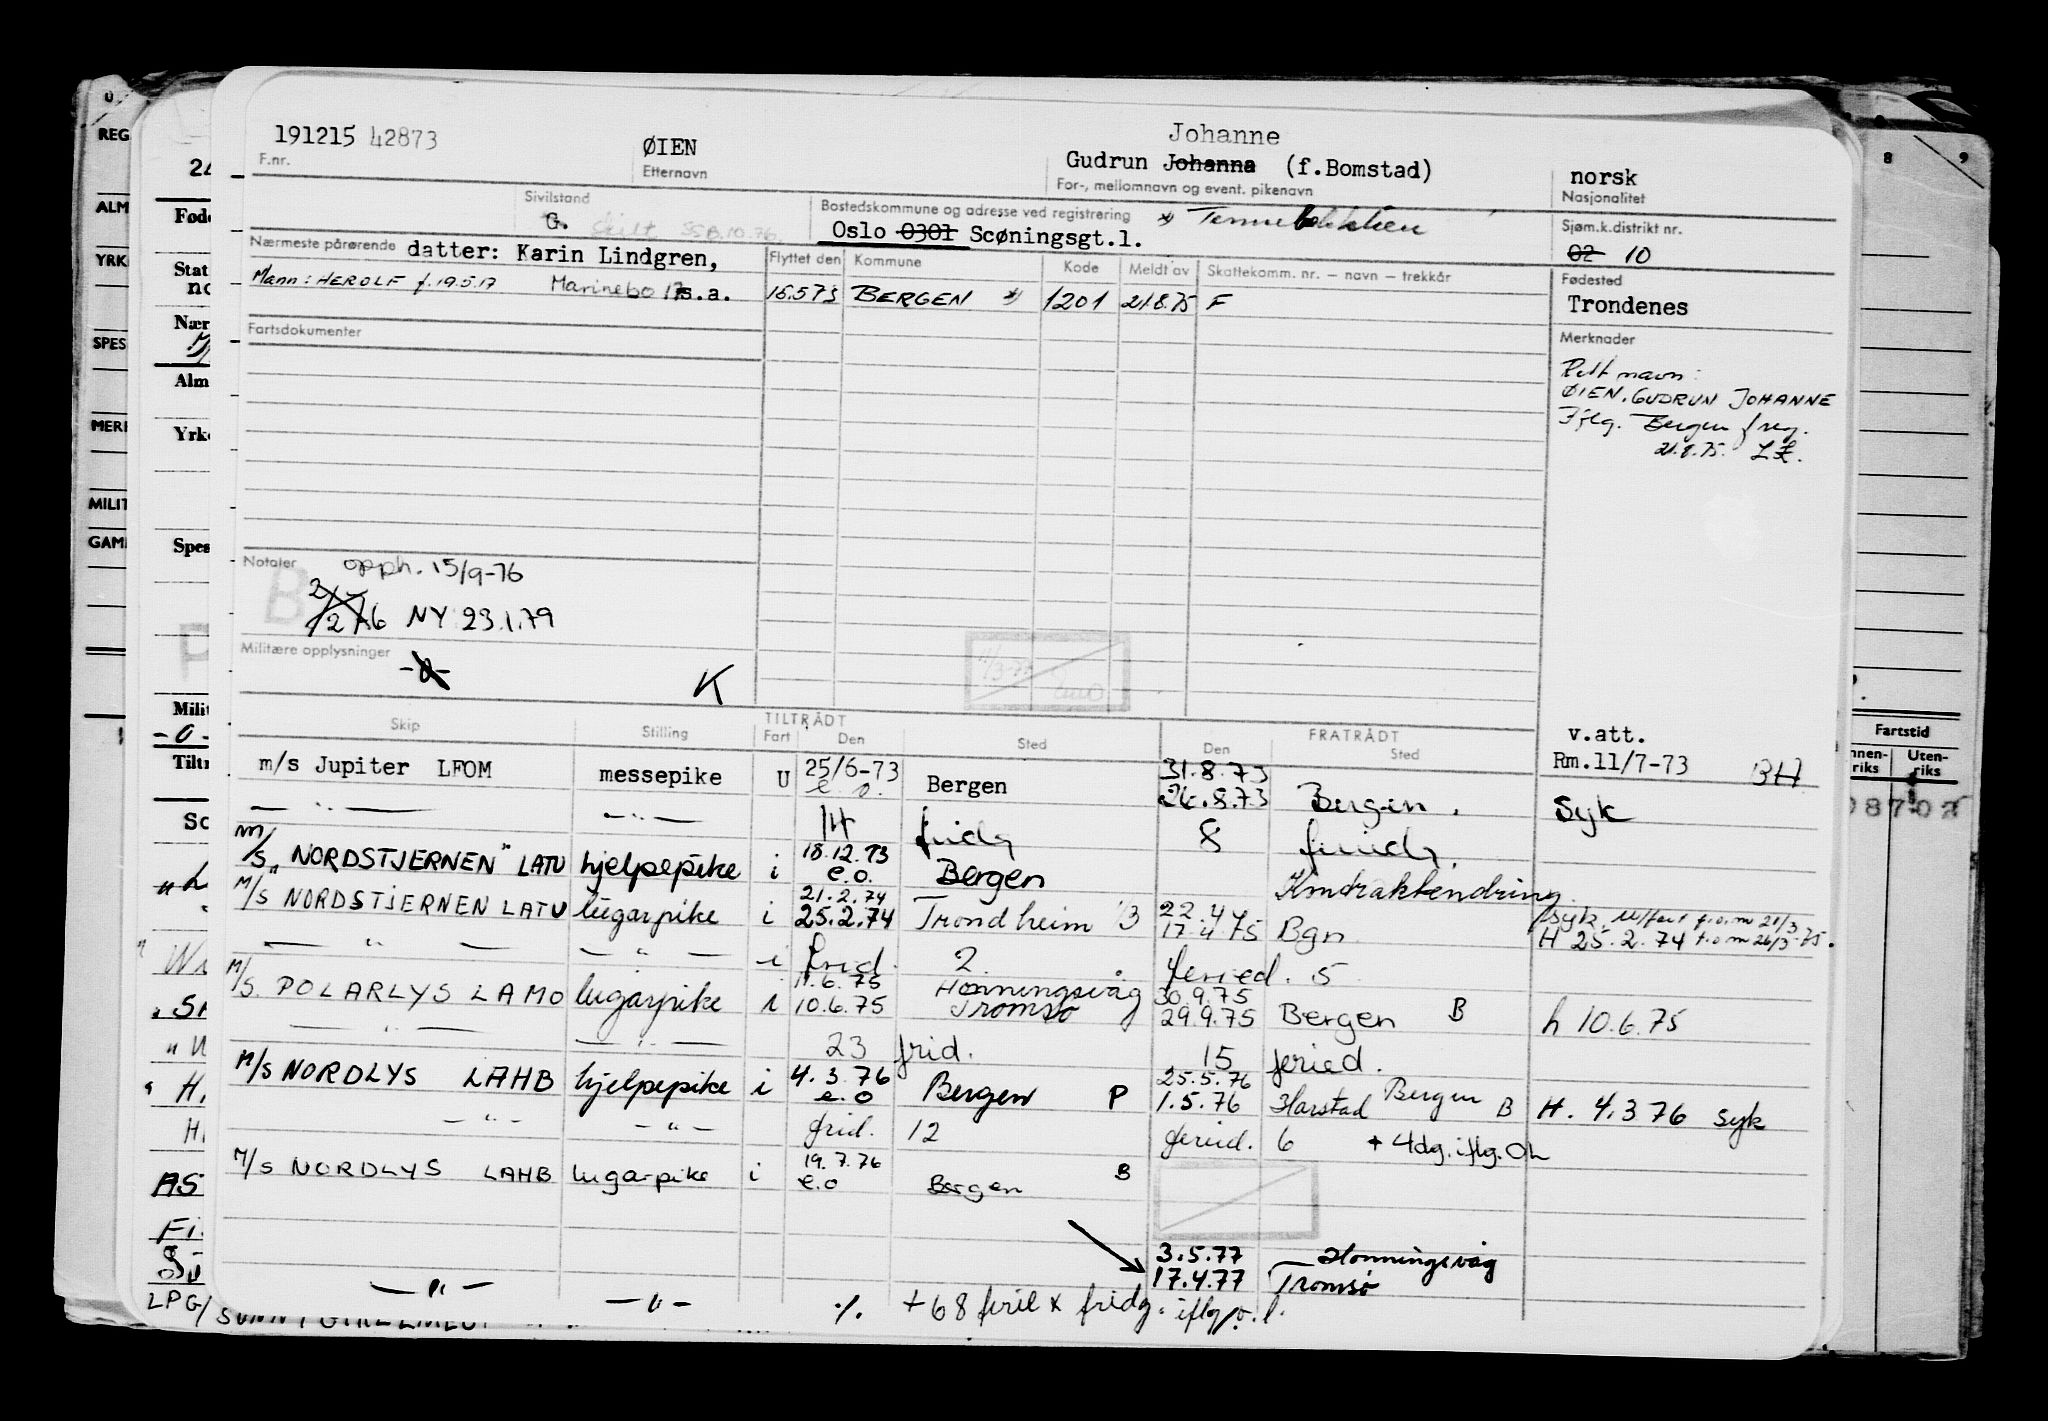 191215 42873 ØIEN Johanne
Gudrun Johanna (f.Bomstad) norsk
F.nr. Etternavn For-, mellomnavn og event. pikenavn Nasjonalitet
Sivilstand Bostedskommune og adresse ved registrering Sjøm.k.distrikt nr.
G. Skilt Oslo 0301 Scøningsgt.1. 02 10
Nærmeste pårørende datter: Karin Lindgren, Flyttet den Kommune Kode Meldt av Skattekomm. nr. – navn – trekkår Fødested
Mann: HEROLF f. 19.5.17 Marinebo s.a. 16.5.73 BERGEN x) 1201 21.8.75 F Trondenes
Fartsdokumenter Merknader
Rett navn:
ØIEN, GUDRUN JOHANNE
Iflg. Bergen f reg.
21.8.75.
Notater opph. 15/9-76
B
2/2 76 NY 23.1.79
Militære opplysninger -0- K
Skip Stilling TILTRÅDT FRATRÅDT v.att.
Fart Den Sted Den Sted
m/s Jupiter LFOM messepike U 25/6-73 Bergen 31.8.73 Rm.11/7-73 BH
e.o. 26.8.73 Bergen. Syk
— " — — " — 14 fridg 8 feriedg.
M/S "NORDSTJERNEN" LATU hjelpepike i 18.12.73 Bergen Kontraktendring
e.o.
M/S NORDSTJERNEN LATU lugarpike i 21.2.74 Trondheim 22.4 Bgn Syk
25.2.74 17.4.75 H 25.2.74 f.o.m 26/3-75.
— " — — " — i frid. 2 feried. 5
M/S. POLARLYS LAMO lugarpike i 11.6.75 Honningsvåg 30.9.75
10.6.75 Tromsø 29.9.75 Bergen B h 10.6.75
— " — — " — 23 frid. 15 feried.
M/S NORDLYS LAHB hjelpepike i 4.3.76 Bergen P 25.5.76 Bergen
e.o 1.5.76 Harstad B H. 4.3 76 syk
— " — — " — frid. 12 feried. 6 + 4dg. iflg. OL
M/S NORDLYS LAHB lugarpike i 19.7.76 Bergen B
e.o
3.5.77 Honningsvåg
17.4.77 Tromsø
— " — — " — ./. + 68 ferie x fridg. iflg p.l.
REG
ALM
YRK
SPES
MERK
MILIT
GAM
Fød
Stat
no
Nær
Alm
Yrk
Spes
Milit
-0-
Tiltr
AS
LPG/
8 9
Fartstid
Innen-riks Uten-riks